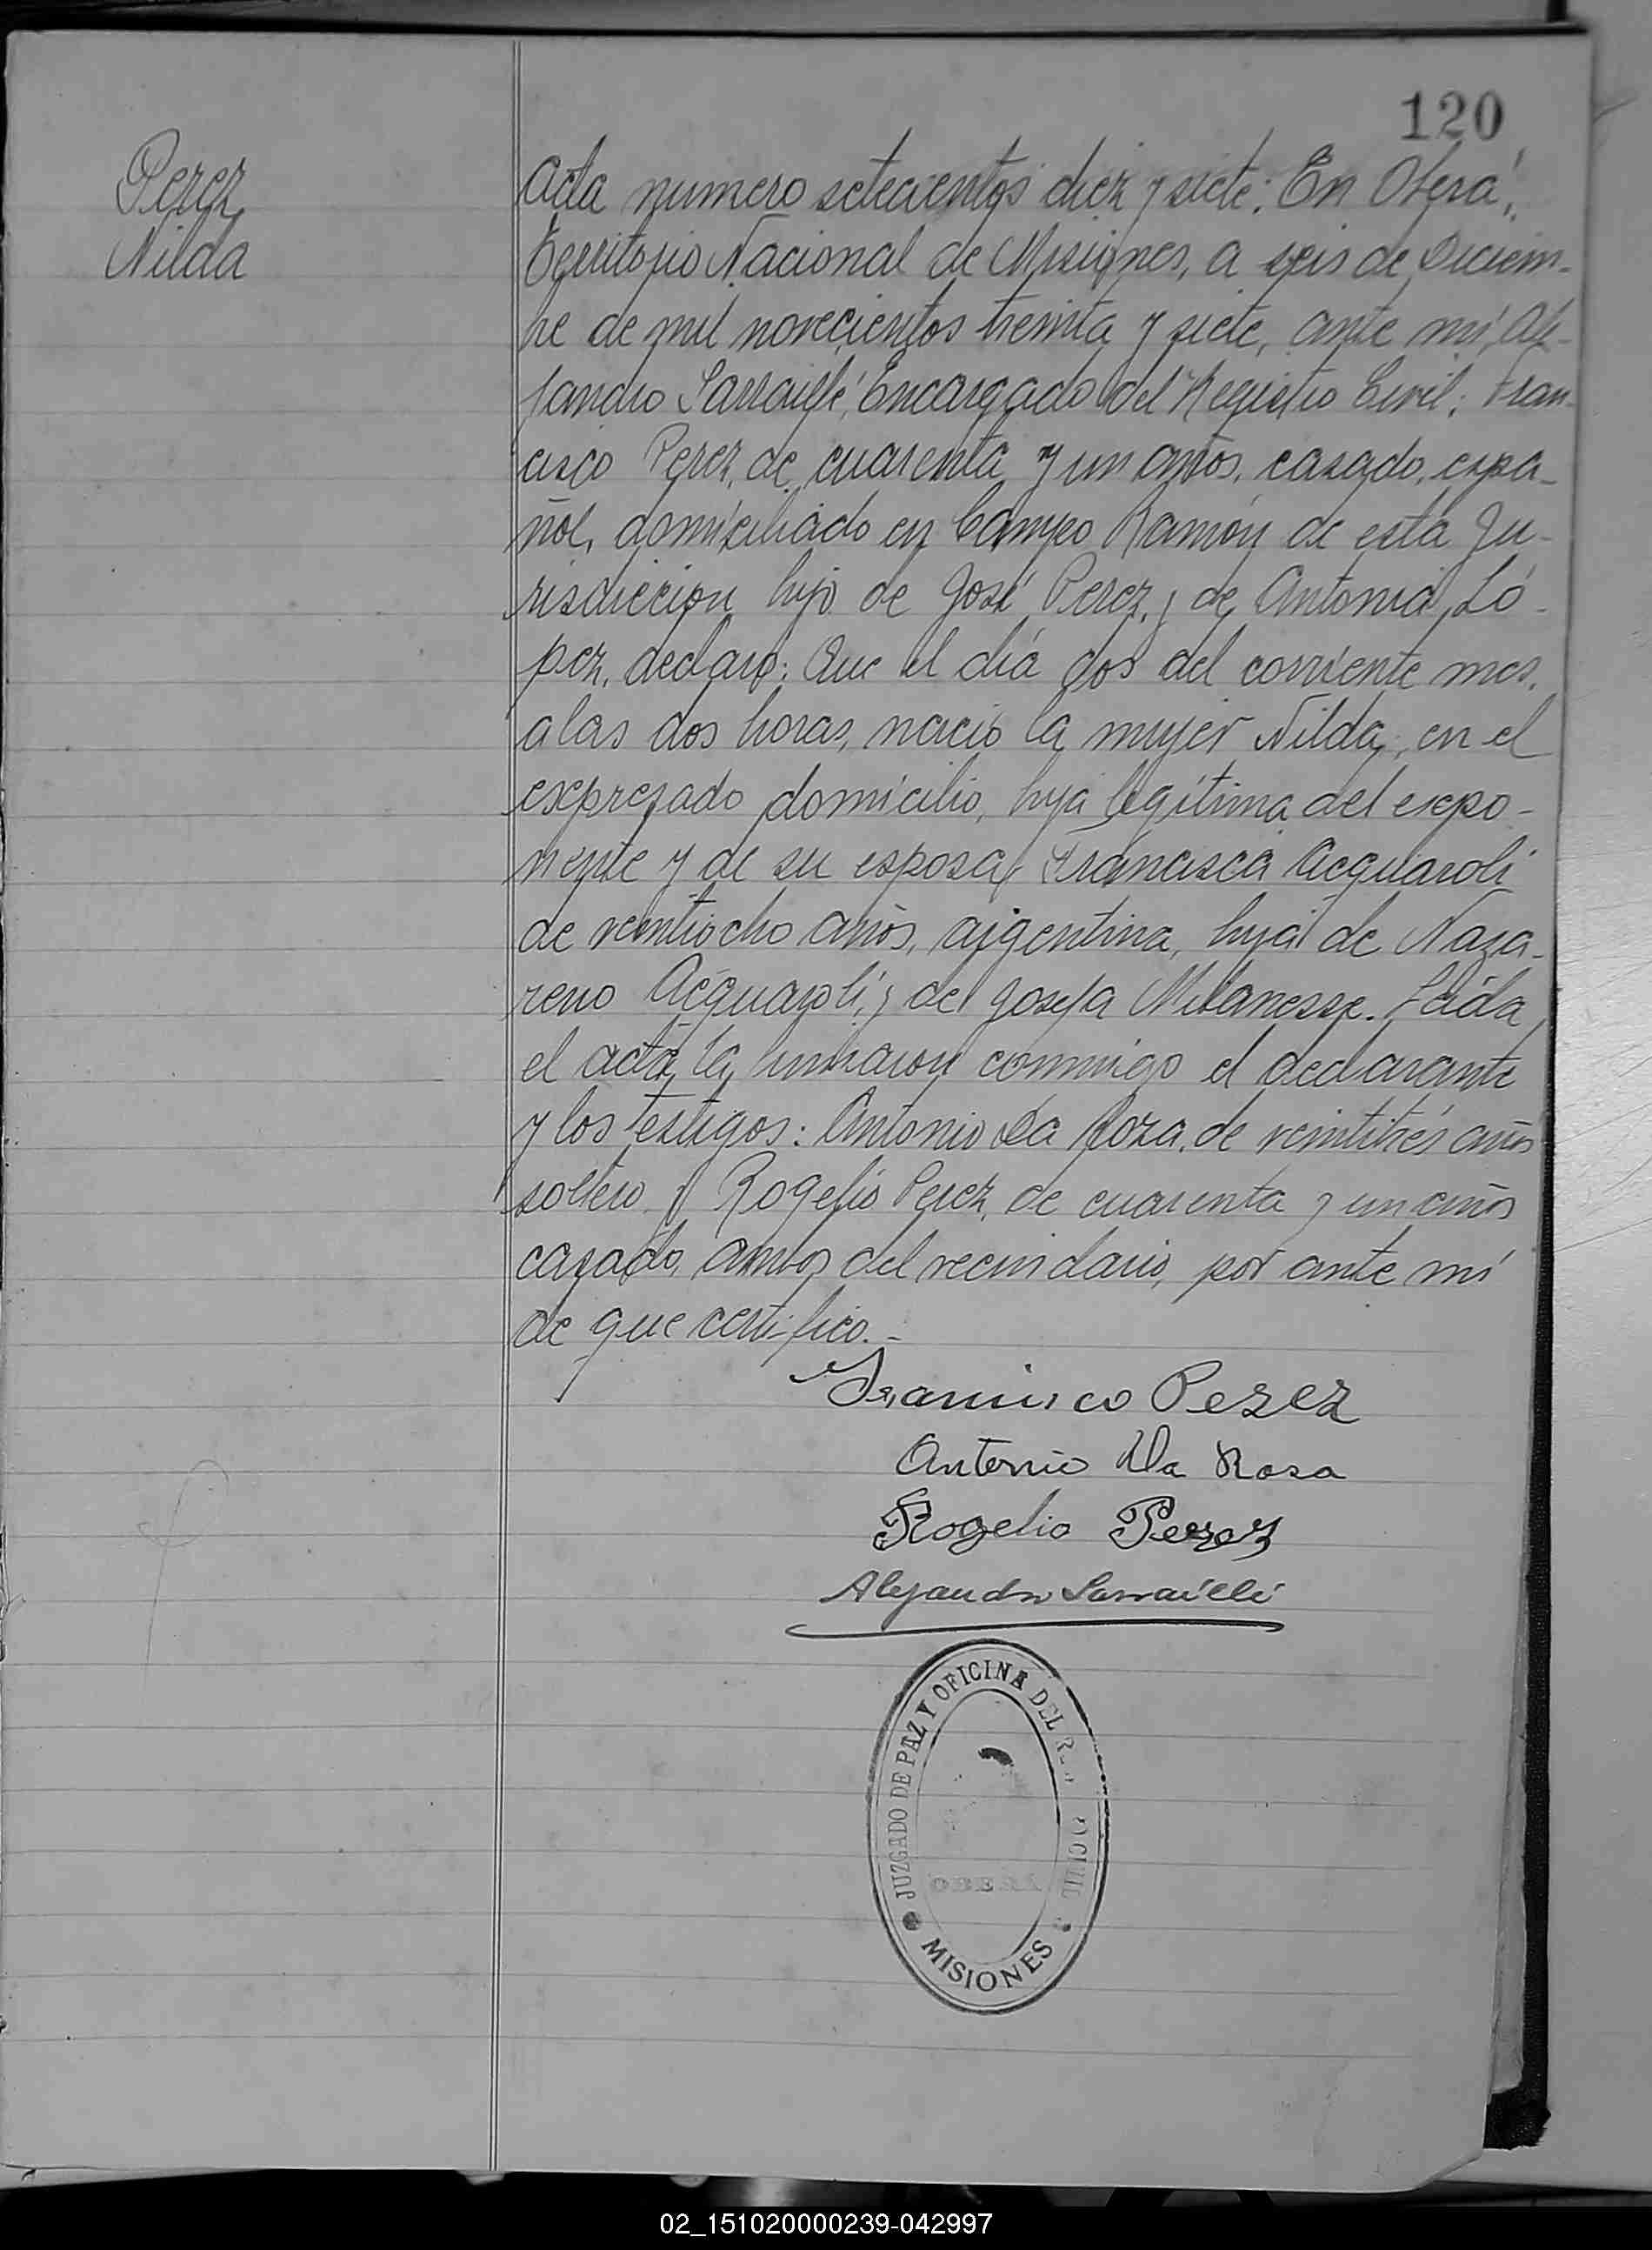 120
Perez
Nilda
Acta numero setecientos diez y siete: En Oberá,
Territorio Nacional de Misiones, a seis de Diciem-
bre de mil novecientos treinta y siete, ante mí, Ale-
jandro Sarraillé, Encargado del Registro Civil; Fran-
cisco Perez, de cuarenta y un años, casado, espa-
ñol, domiciliado en Campo Ramón de esta Ju-
risdiccion hijo de José Perez, y de Antonia Ló-
pez, declaró: Que el día dos del corriente mes,
a las dos horas, nació la mujer Nilda, en el
expresado domicilio, hija legítima del expo-
nente y de su esposa Francisca Acquaroli
de veintiocho años, argentina, hija de Naza-
reno Acquaroli, y de Josefa Milanesse. Leida
el acta, la firmaron conmigo el declarante
y los testigos: Antonio Da Roza, de veintitrés años
soltero y Rogelio Perez, de cuarenta y un años
casado, amos del vecindario, por ante mí
de que certifico.-
Francisco Perez
Antonio Da Rosa
Rogelio Perez
Alejandro Sarraillé
JUZGADO DE PAZ Y OFICINA DEL R CIVIL
OBERÁ
MISIONES
02_151020000239-042997